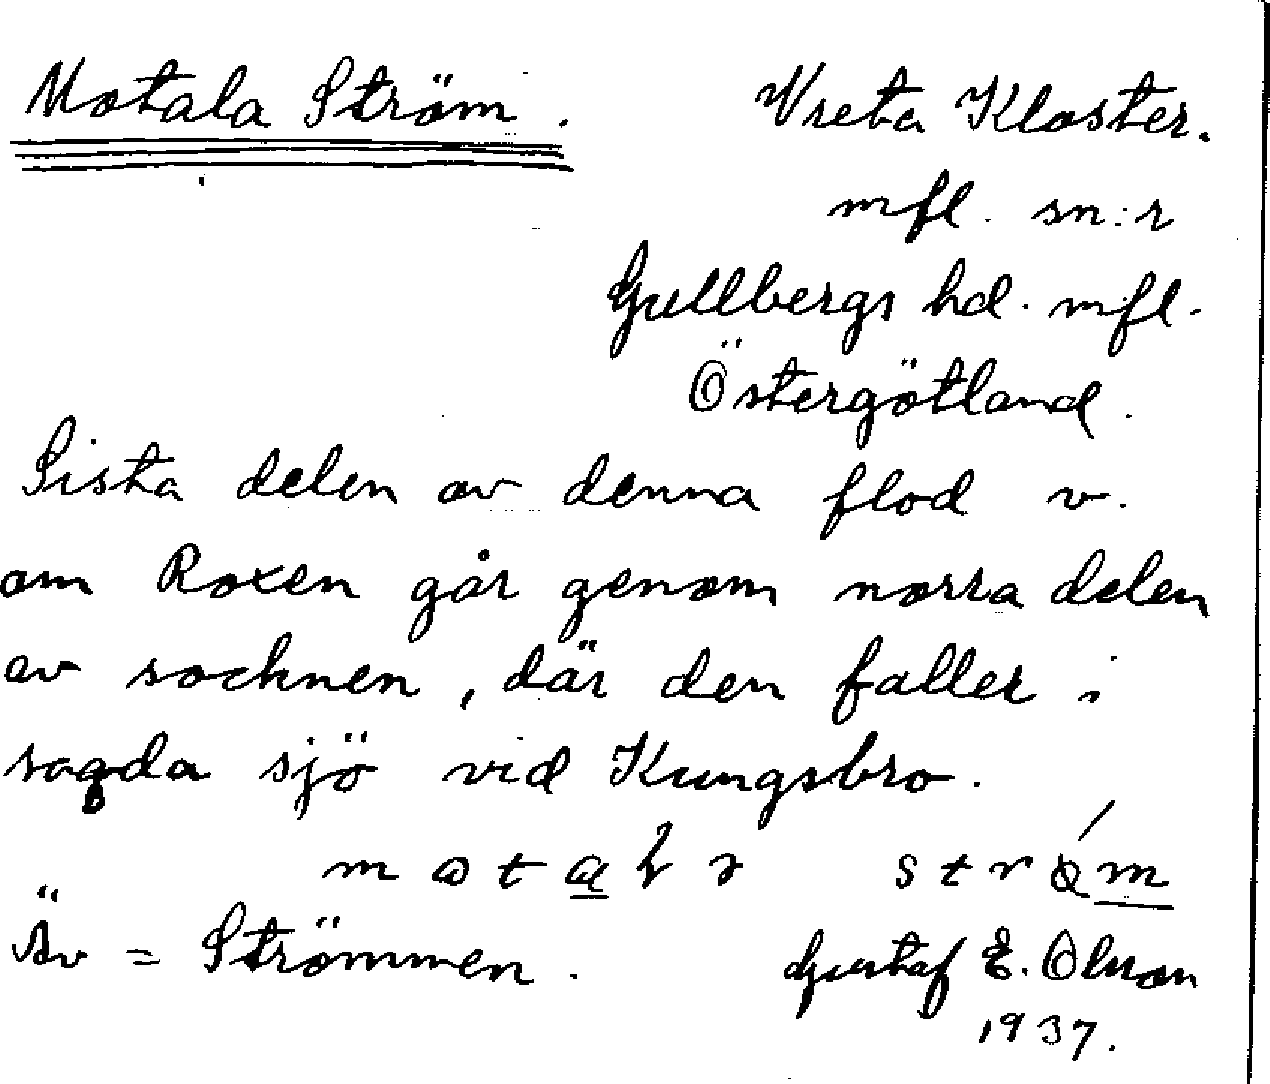 Motala Ström. Vreta Kloster.
mfl. sn:r
Gullbergs hd. mfl.
Östergötland.
Sista delen av denna flod v.
om Roxen går genom norra delen
av socknen, där den faller i
sagda sjö vid Kungsbro.
Äv = Strömmen. Gustaf E. Olsson
1937.